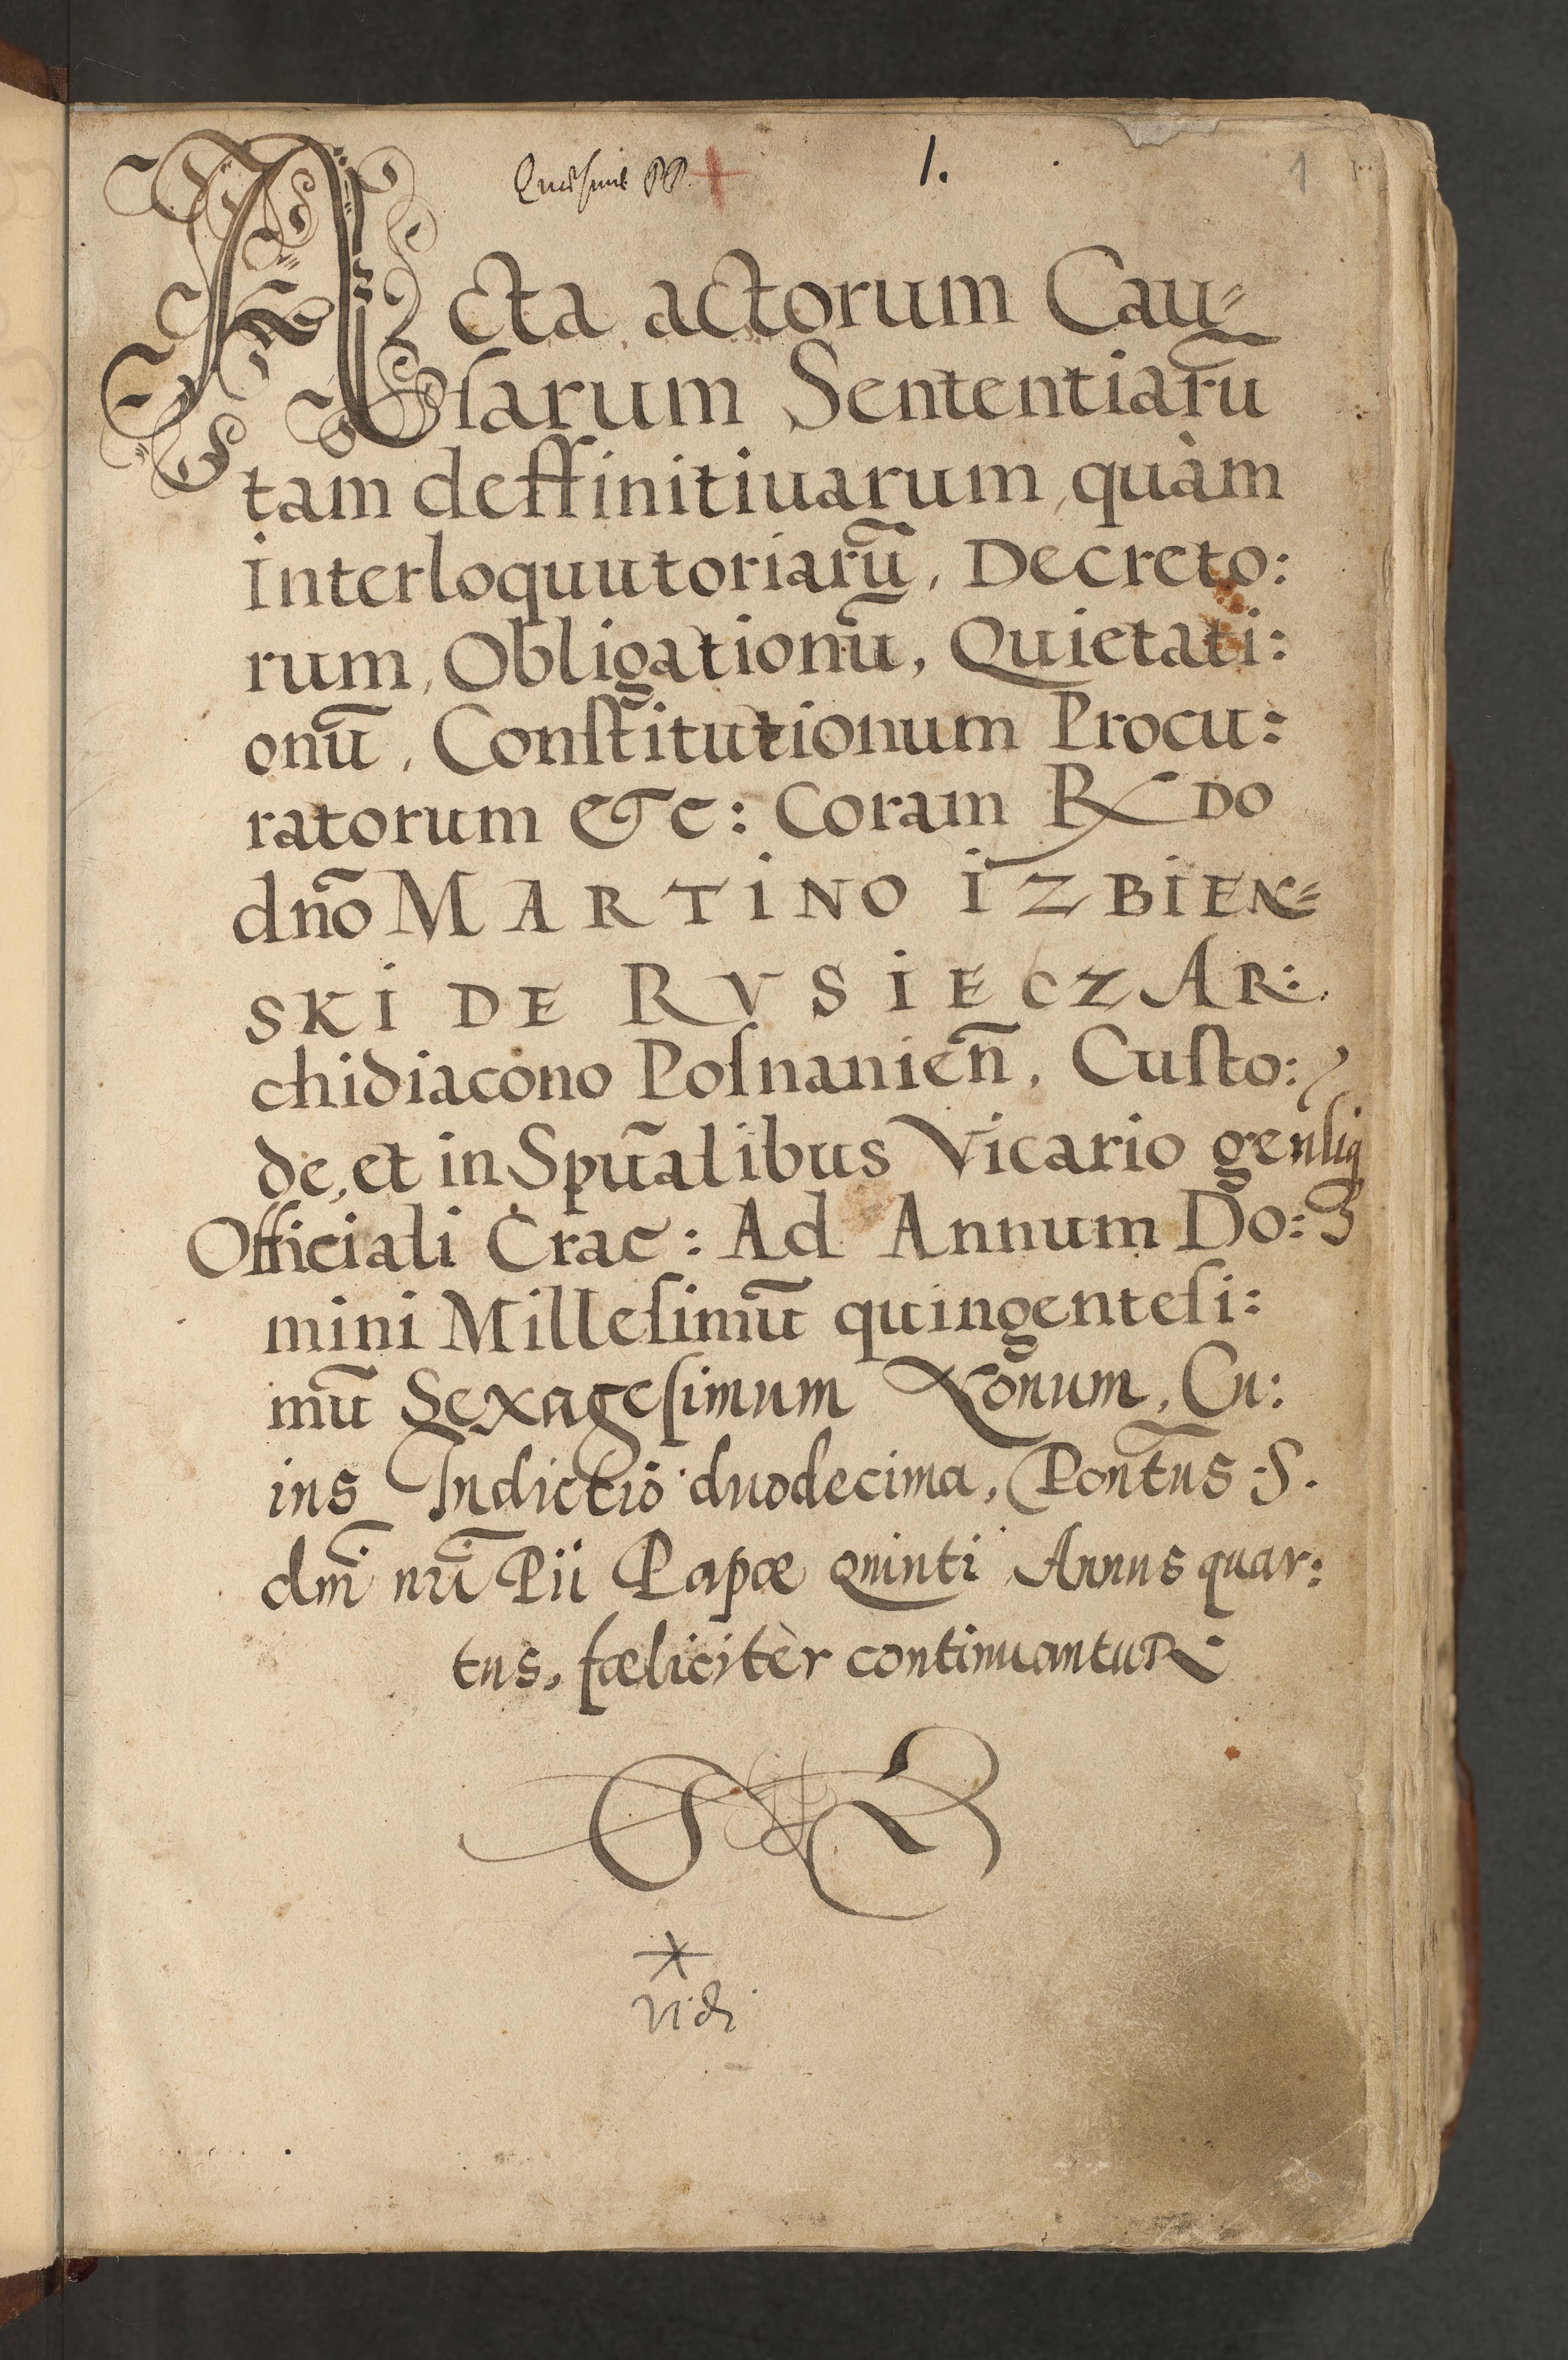 1. 1
Acta actorum Cau⸗
ſarum Sententiarũ
tam deffinitiuarum, quàm
Interloquutoriarũ, Decreto:
rum, Obligationũ, Quietati:
onũ, Conſtitutionum Procu:
ratorum &c: Coram R DO
dño MARTINO IZBIEN⸗
SKI DE RVSIECZ AR:
chidiacono Poſnanien̄, Cuſto:
de, et in Spũalibus Vicario
Officiali Crac̄: Ad Annum Do:
mini Milleſimũ quingenteſi:
mũ Sexageſimum Nonum, Cu:
ius Indictio duodecima, Pontũs S.
dm̄i nr̄i Pii Papæ quinti Annus quar:
tus, fœlicitèr continuantuR
Vidi